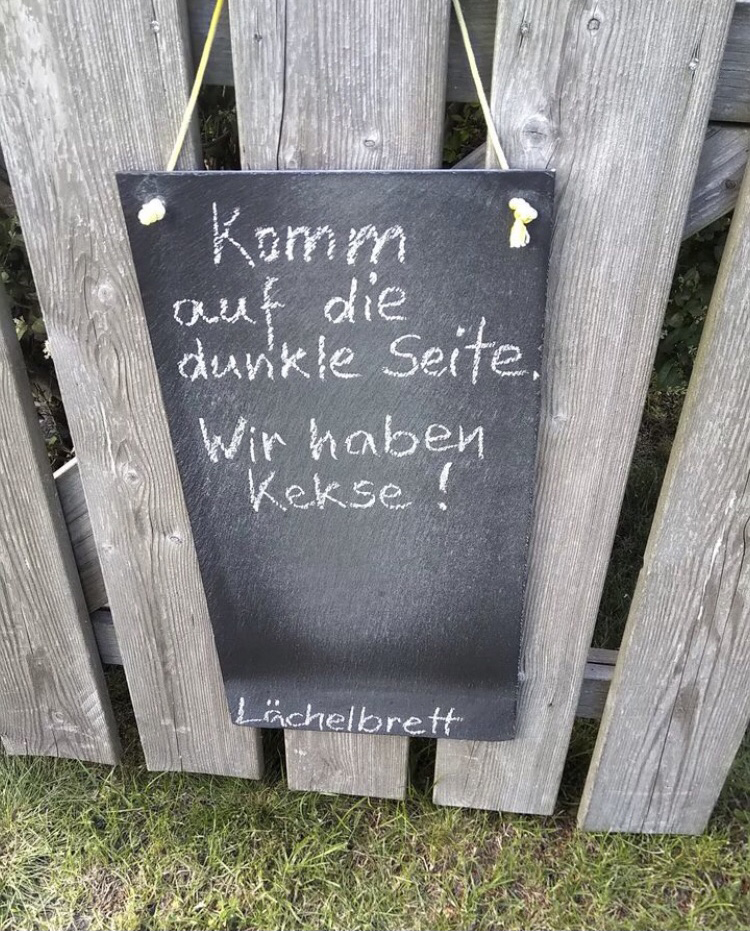 Komm
auf die
dunkle Seite.
Wir haben
Kekse!
Lächelbrett